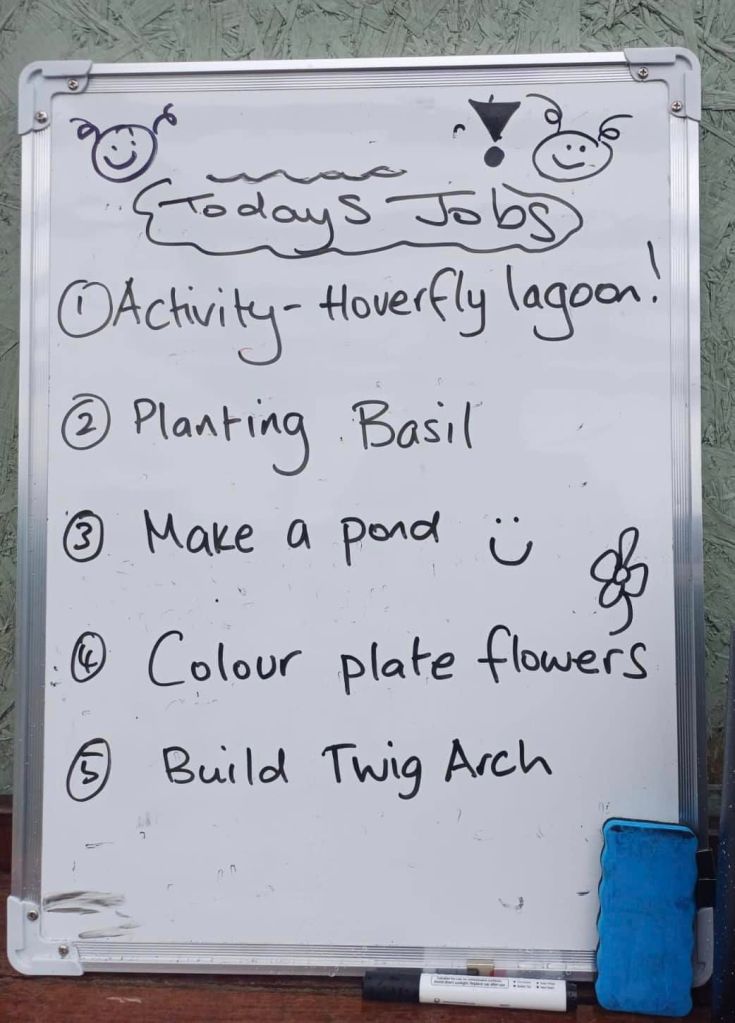 Todays Jobs
① Activity - Hoverfly lagoon!
② Planting Basil
③ Make a pond
④ Colour plate flowers
⑤ Build Twig Arch